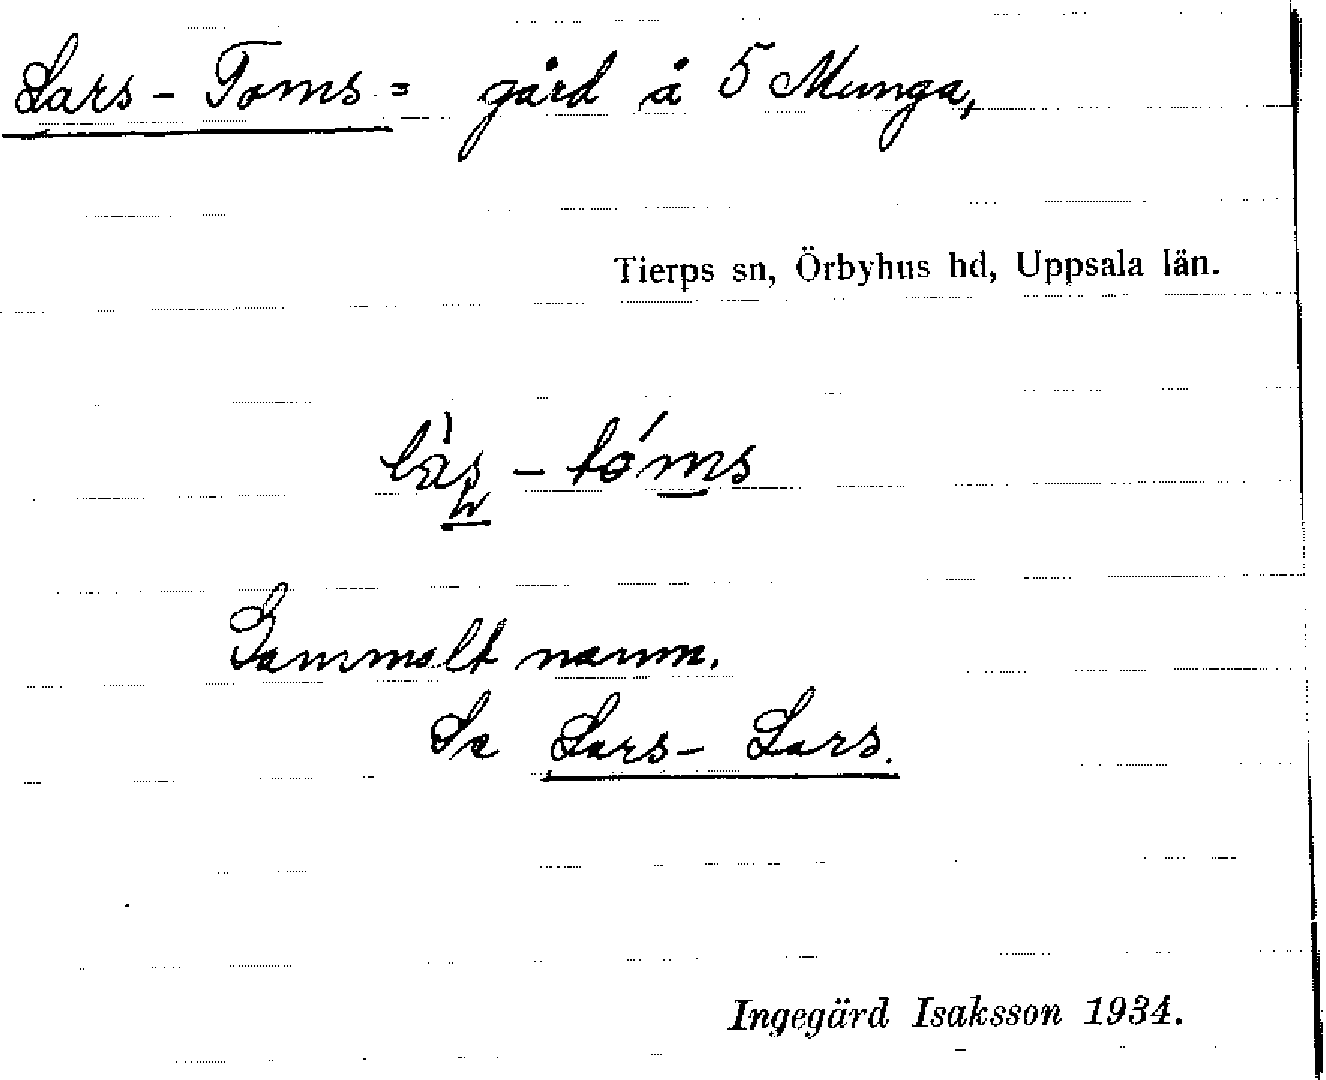 Lars-Toms= gård å 5 Munga,
Tierps sn, Örbyhus hd, Uppsala län.
Gammalt namn.
Se Lars-Lars.
Ingegärd Isaksson 1934.